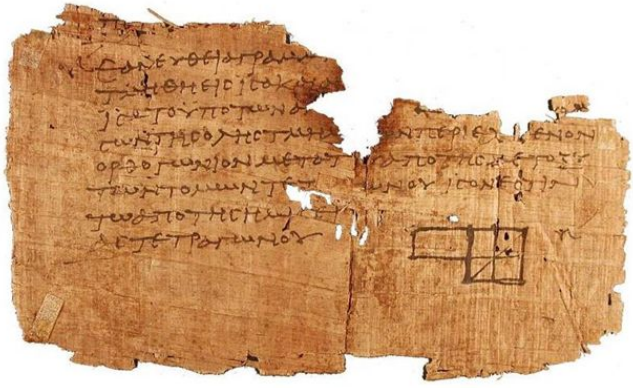 ΕΑΝ ΕΥΘΕΙΑ ΓΡΑΜΜ
ΤΜΗΘΗ ΕΙϹ ΙϹΑ ΚΑΙ
ΙϹΑ ΤΟ ΥΠΟ ΤΩΝ Α
ϹΩΝ ΤΗϹ ΟΛΗϹ ΤΜΗΜ ΩΝ ΠΕΡΙΕΧΟΜΕΝΟΝ
ΟΡΘΟΓΩΝΙΟΝ ΜΕΤΑ ΤΟΥ ΑΠΟ ΤΗϹ ΜΕΤΟΞΥ
ΤΩΝ ΤΟΜΩΝ ΤΕΤ ΩΝΟΥ ΙϹΟΝ ΕϹΤΙΝ
ΤΩ ΑΠΟ ΤΗϹ ΗΜΙϹΕΙ
ΑϹ ΤΕΤΡΑΓΩΝΟΥ